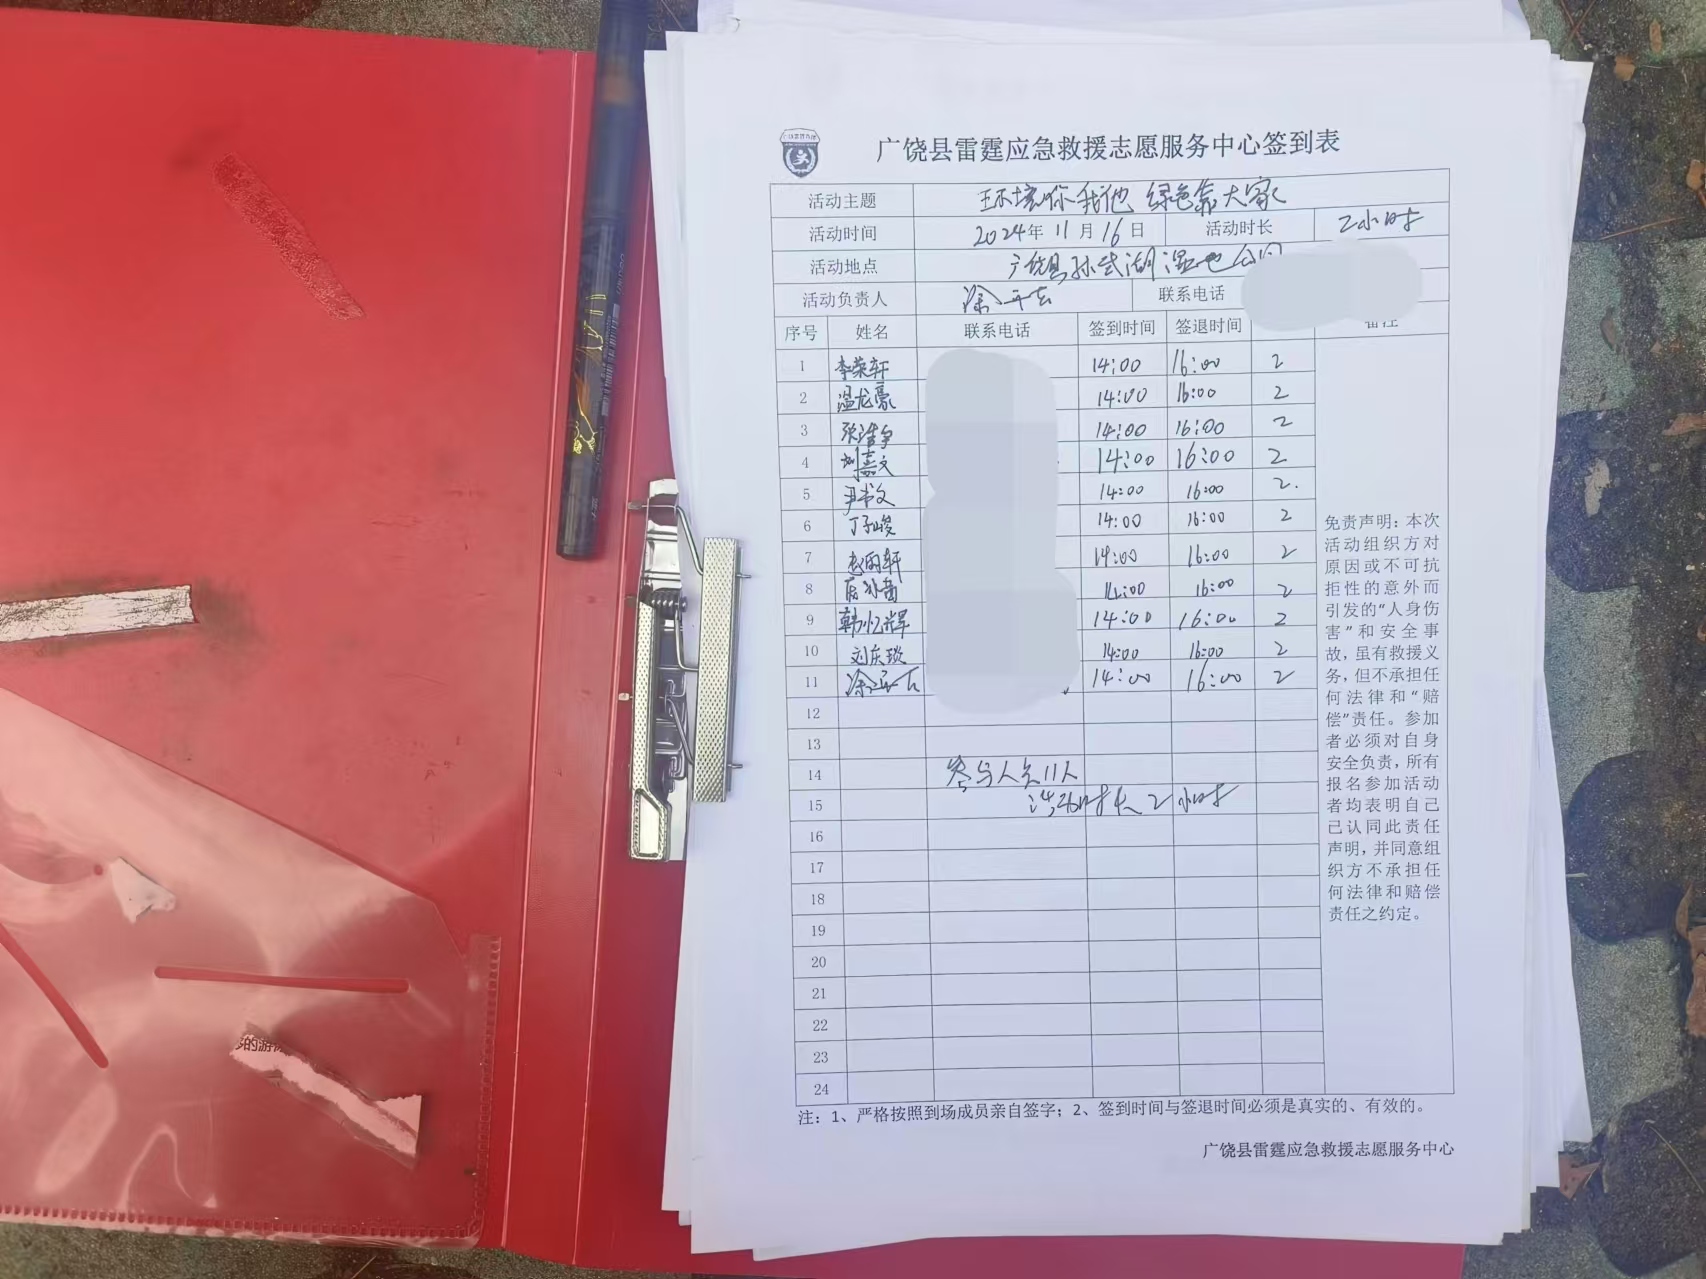 广饶县雷霆应急救援志愿服务中心签到表
活动主题 环境你我他 绿色靠大家
活动时间 2024年 11月 16日 活动时长 2小时
活动地点 广饶县孙武湖湿地公园
活动负责人 联系电话
序号 姓名 联系电话 签到时间 签退时间 备注
1 李荣轩 14:00 16:00 2
2 温龙豪 14:00 16:00 2
3 14:00 16:00 2
4 刘嘉文 14:00 16:00 2
5 尹书文 14:00 16:00 2.
6 丁子峻 14:00 16:00 2
7 14:00 16:00 2
8 14:00 16:00 2
9 韩忆辉 14:00 16:00 2
10 刘庆琰 14:00 16:00 2
11 14:00 16:00 2
12
13
14 参与人员11人
15 活动时长2小时
16
17
18
19
20
21
22
23
24
免责声明：本次
活动组织方对
原因或不可抗
拒性的意外而
引发的“人身伤
害”和安全事
故，虽有救援义
务，但不承担任
何法律和“赔
偿”责任。参加
者必须对自身
安全负责，所有
报名参加活动
者均表明自己
已认同此责任
声明，并同意组
织方不承担任
何法律和赔偿
责任之约定。
注：1、严格按照到场成员亲自签字；2、签到时间与签退时间必须是真实的、有效的。
广饶县雷霆应急救援志愿服务中心